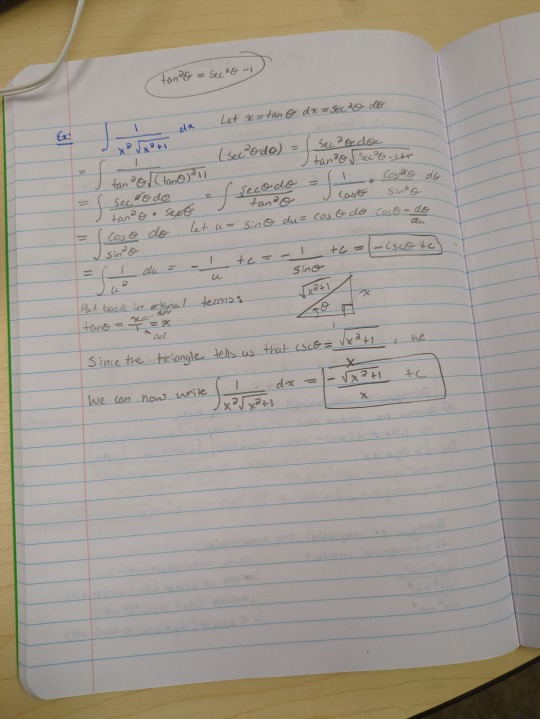 tan²θ = sec²θ - 1
Ex: ∫ 1/(x²√(x²+1)) dx Let x = tanθ dx = sec²θ dθ
= ∫ 1/(tan²θ√((tanθ)²+1)) (sec²θdθ) = ∫ sec²θdθ/(tan²θ√(sec²θ-1+1))
= ∫ sec²θdθ/(tan²θ · secθ) = ∫ secθdθ/tan²θ = ∫ 1/cosθ · cos²θ/sin²θ dθ
= ∫ cosθ/sin²θ dθ Let u = sinθ du = cosθ dθ
= ∫ 1/u² du = -1/u + c = -1/sinθ + c = -cscθ + c
Put back in original terms:
√(x²+1) x
θ
1
tanθ = x/1 = x
Since the triangle tells us that cscθ = √(x²+1)/x, we
We can now write ∫ 1/(x²√(x²+1)) dx = -√(x²+1)/x + c